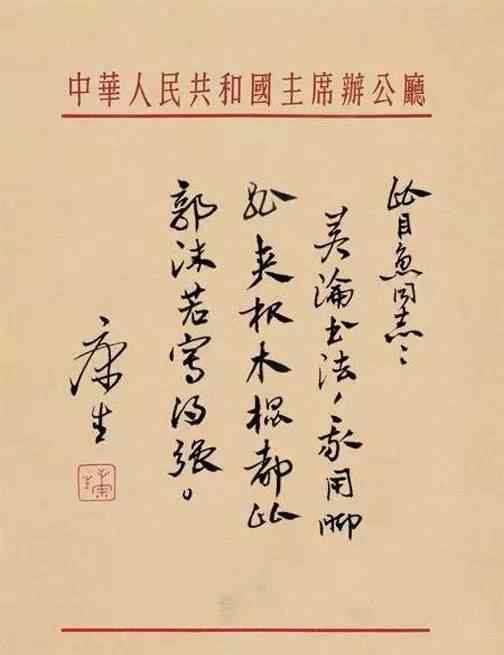 中華人民共和國主席辦公廳
比目魚同志：
若論书法，我用脚
趾夹根木棍都比
郭沫若写得强。
康生